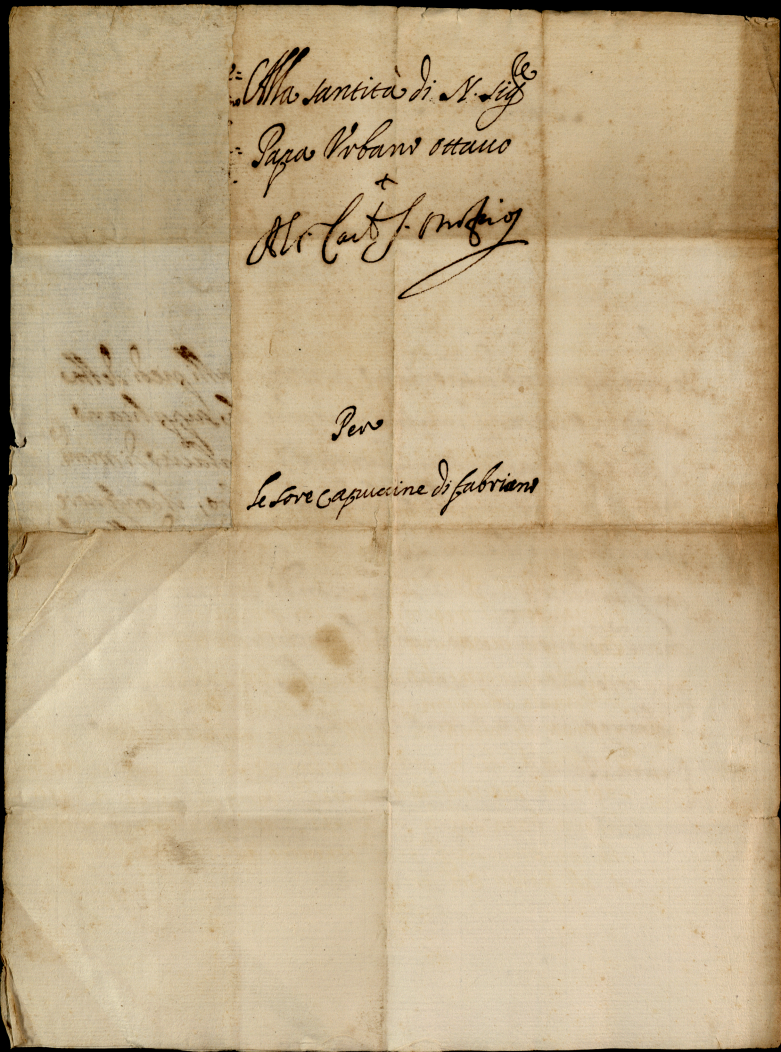 Alla santità di N. Sig.re
Papa Vrbano ottauo
+
Al Card. S. Onofrio
Per
le sore capuccine di fabriano